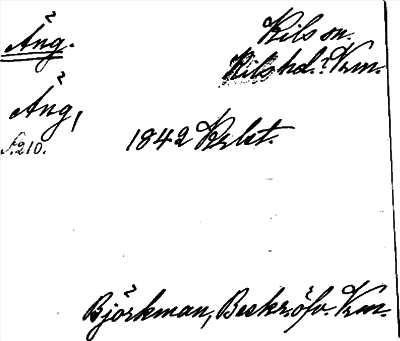 Äng.
Kils sn.
Kils hd. Vrm.
Äng,
s. 210.
1842 Krlst.
Björkman, Beskr. öfv. Vrm.